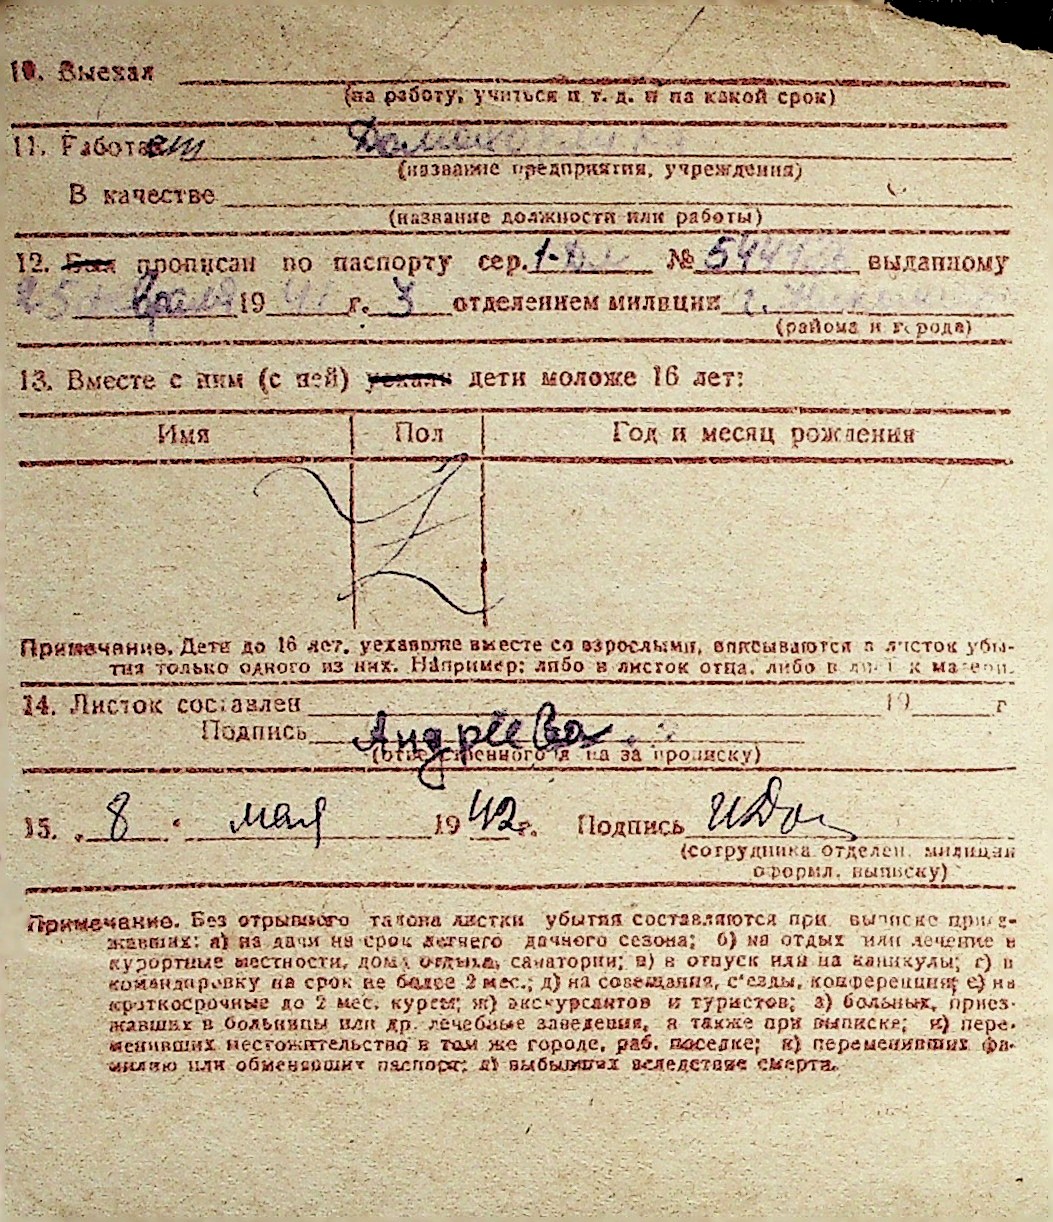 10. Выехал
(на работу, учиться и т. д. и на какой срок)
11. Работает Домохозяйка
(название предприятия, учреждения)
В качестве
(название должности или работы)
12. Был прописан по паспорту сер. 1- № выданному
25 февраля 1941 г. 3 отделением милиции г.
(района и города)
13. Вместе с ним (с ней) уехали дети моложе 16 лет:
Имя Пол Год и месяц рождения
Примечание. Дети до 16 лет, уехавшие вместе со взрослыми, вписываются в листок убы-
тия только одного из них. Например: либо в листок отца, либо в листок матери.
14. Листок составлен 19 г
Подпись Андреева
(ответственного л на за прописку)
15. „8“ мая 1942 г. Подпись
(сотрудника отделен. милиции
оформл. выписку)
Примечание. Без отрывного талона листки убытия составляются при выписке приез-
жавших: а) на дачи на срок летнего дачного сезона; б) на отдых или лечение в
курортные местности, дома отдыха, санатории; в) в отпуск или на каникулы; г) в
командировку на срок не более 2 мес.; д) на совещания, съезды, конференции; е) на
краткосрочные до 2 мес. курсы; ж) экскурсантов и туристов; з) больных, приез-
жавших в больницы или др. лечебные заведения, а также при выписке; и) пере-
менивших местожительство в том же городе, раб. поселке; к) переменивших фа-
милию или обменявших паспорт; л) выбывших вследствие смерти.